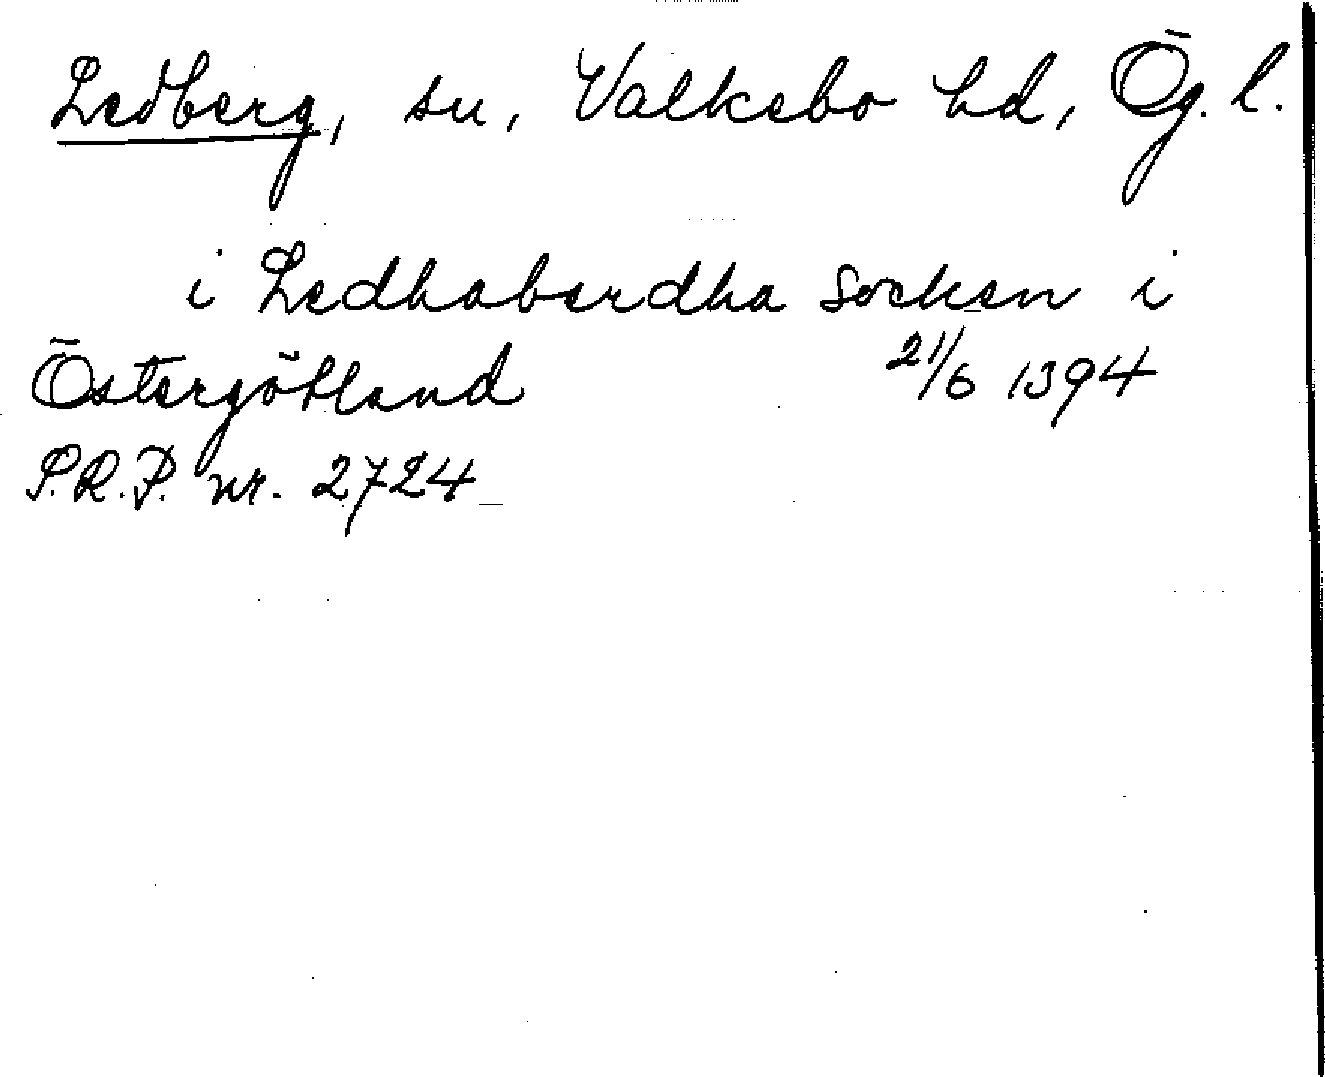 Ledberg, sn, Valkebo hd, Ög. l.
i Ledhaberdha socken i
Östergötland 21/6 1394
S.R.P. nr. 2724